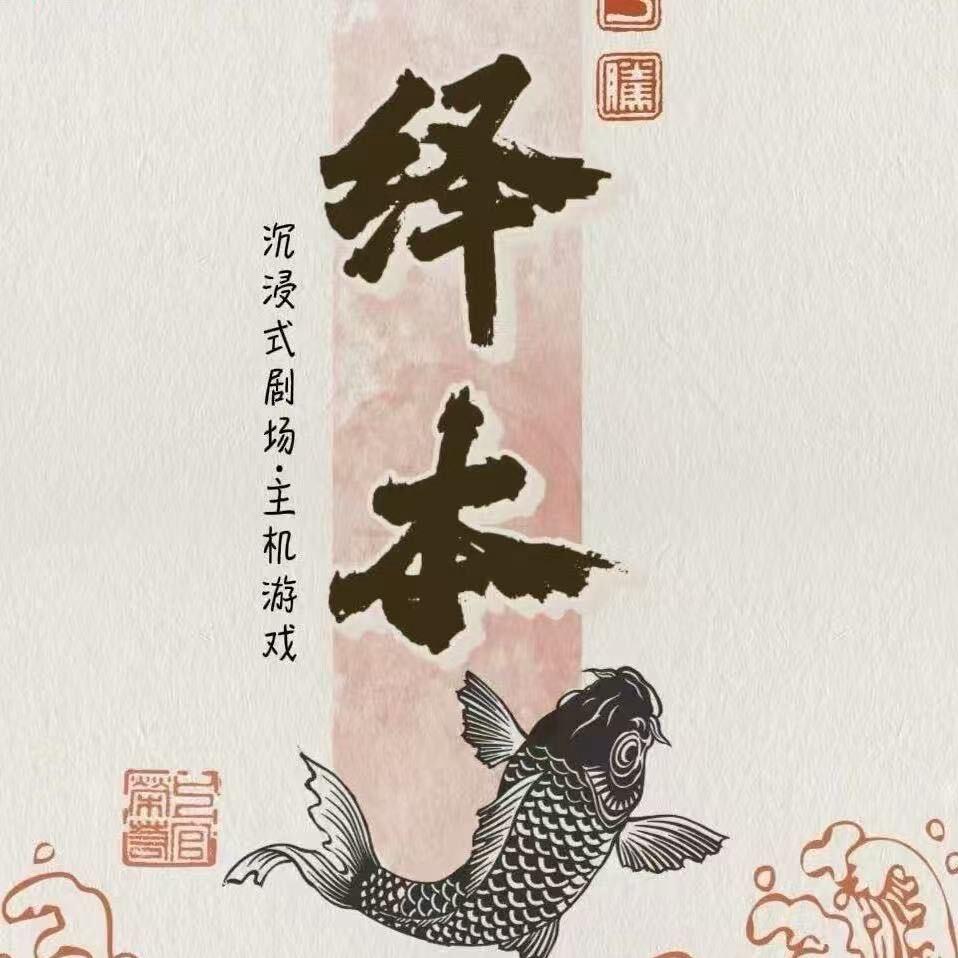 绎本
沉浸式剧场·主机游戏
騰